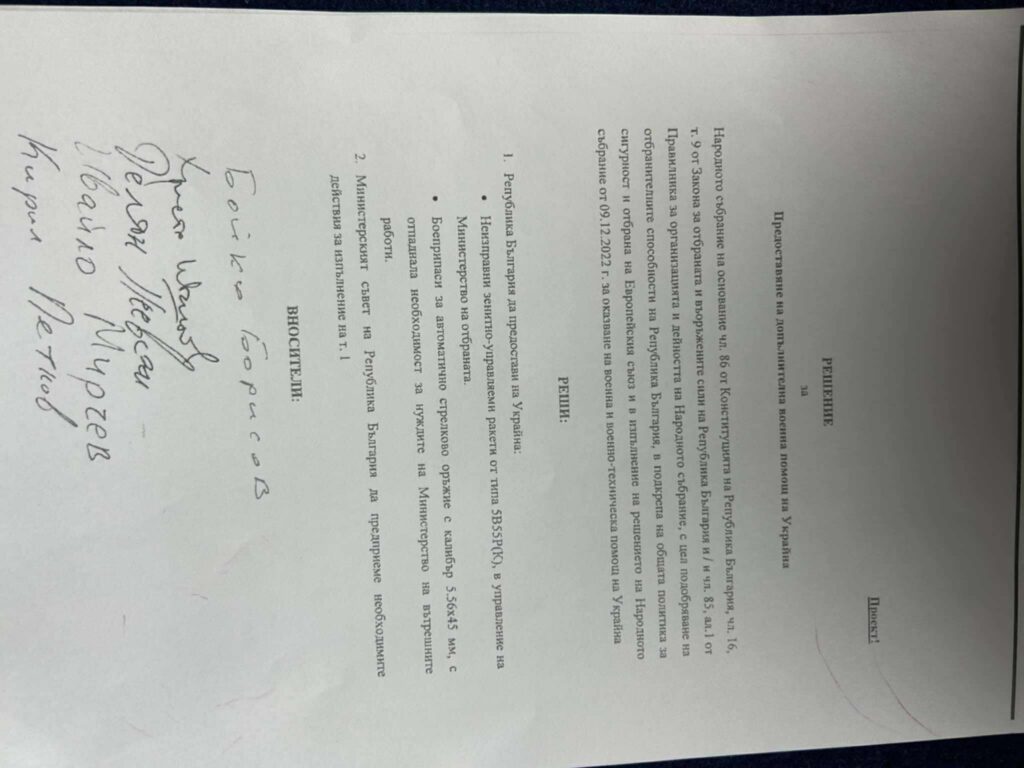 Проект!
РЕШЕНИЕ
за
Предоставяне на допълнителна военна помощ на Украйна
Народното събрание на основание чл. 86 от Конституцията на Република България, чл. 16,
т. 9 от Закона за отбраната и въоръжените сили на Република България и / и чл. 85, ал.1 от
Правилника за организацията и дейността на Народното събрание, с цел подобряване на
отбранителните способности на Република България, в подкрепа на общата политика за
сигурност и отбрана на Европейския съюз и в изпълнение на решението на Народното
събрание от 09.12.2022 г. за оказване на военна и военно-техническа помощ на Украйна
РЕШИ:
1. Република България да предостави на Украйна:
• Неизправни зенитно-управляеми ракети от типа 5В55Р(К), в управление на
Министерство на отбраната.
• Боеприпаси за автоматично стрелково оръжие с калибър 5.56x45 мм, с
отпаднала необходимост за нуждите на Министерство на вътрешните
работи.
2. Министерският съвет на Република България да предприеме необходимите
действия за изпълнение на т. 1
ВНОСИТЕЛИ:
Бойко Борисов
Христо Иванов
Делян Пеевски
Ивайло Мирчев
Кирил Петков